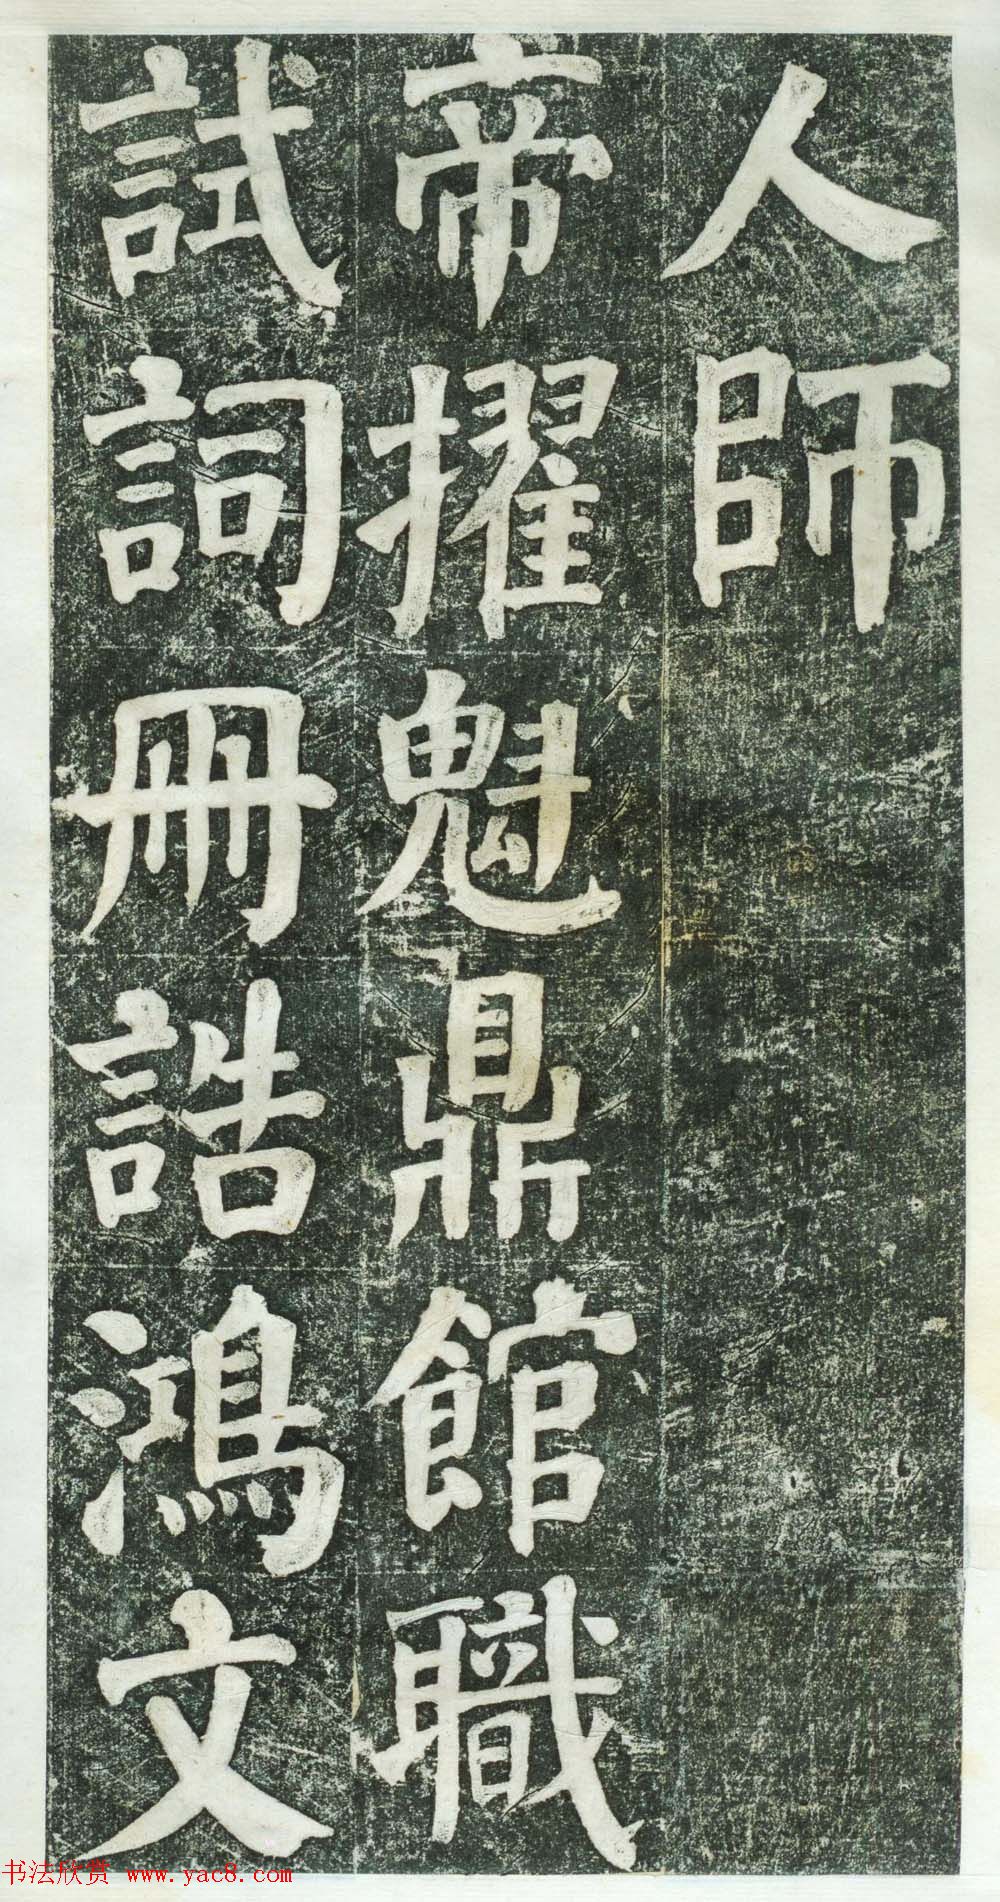 人師
帝擢魁鼎館職
試詞冊誥鴻文
书法欣赏 www.yac8.com